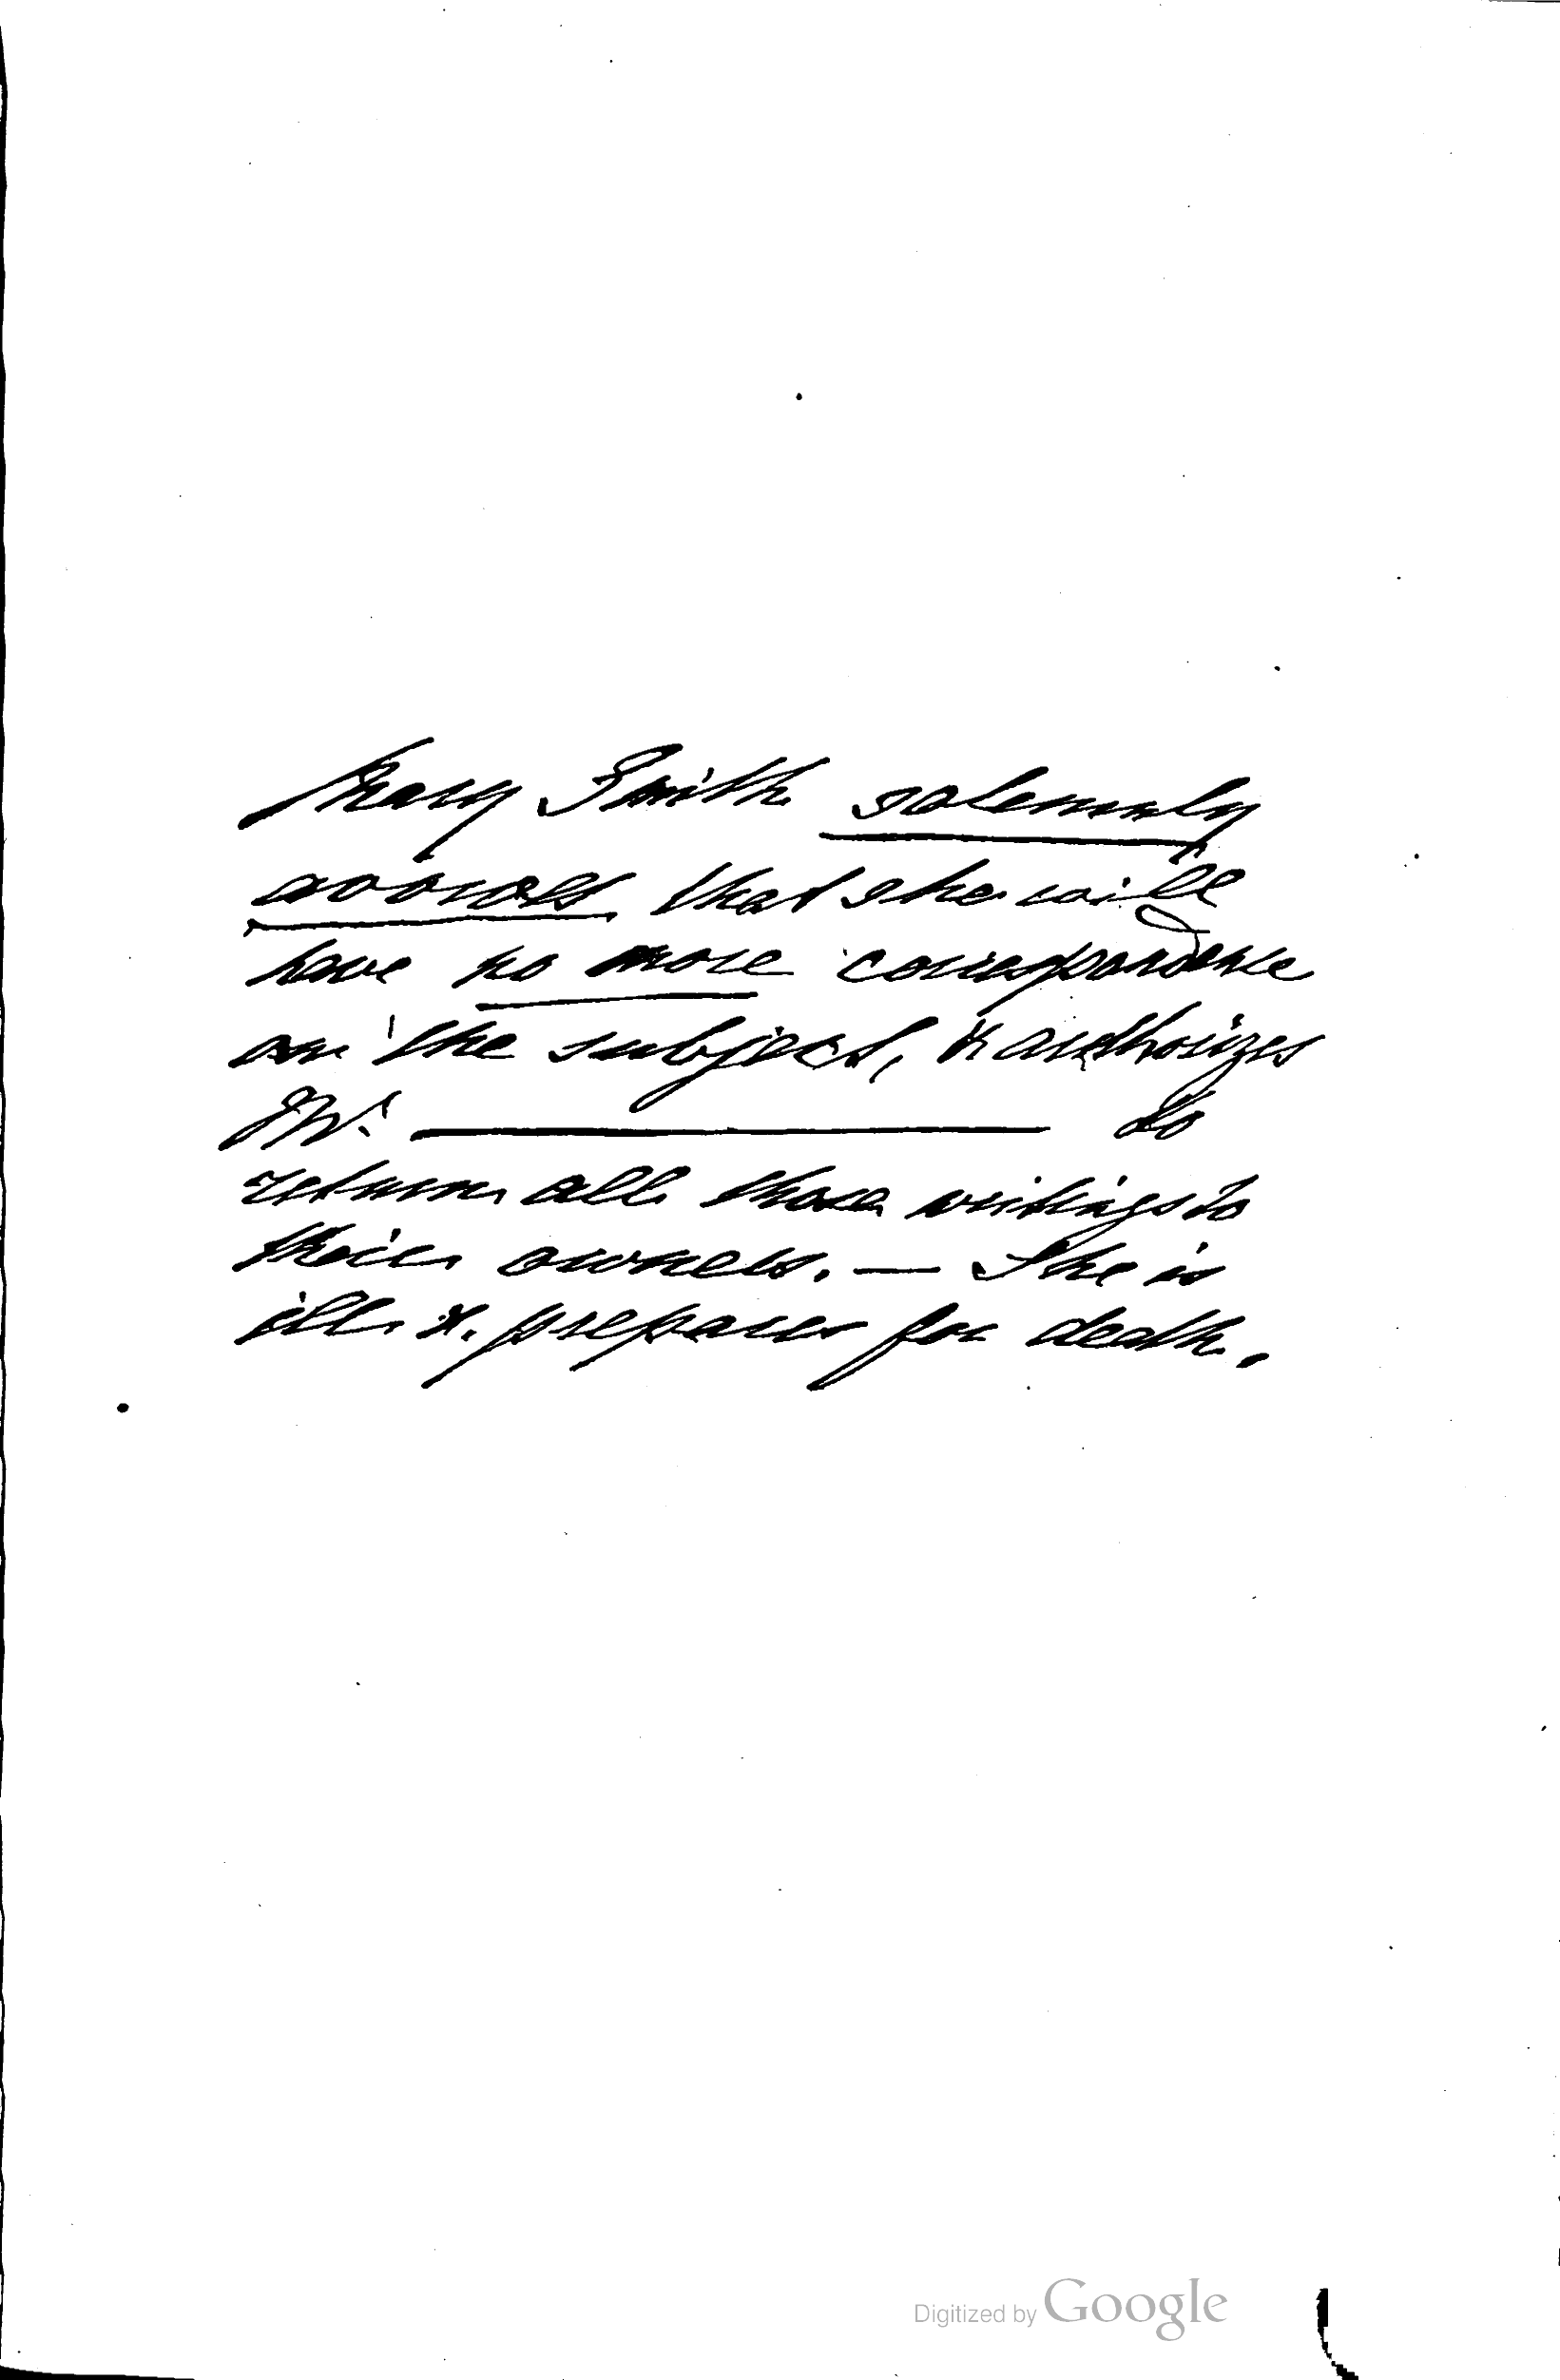 Mary Smith solemnly
avowes that she will
have no more correspondence
on the subject, & authorizes
Mr. ——— to
return all those writings to
their owners. — She is
ill & prepares for death.
Digitized by Google